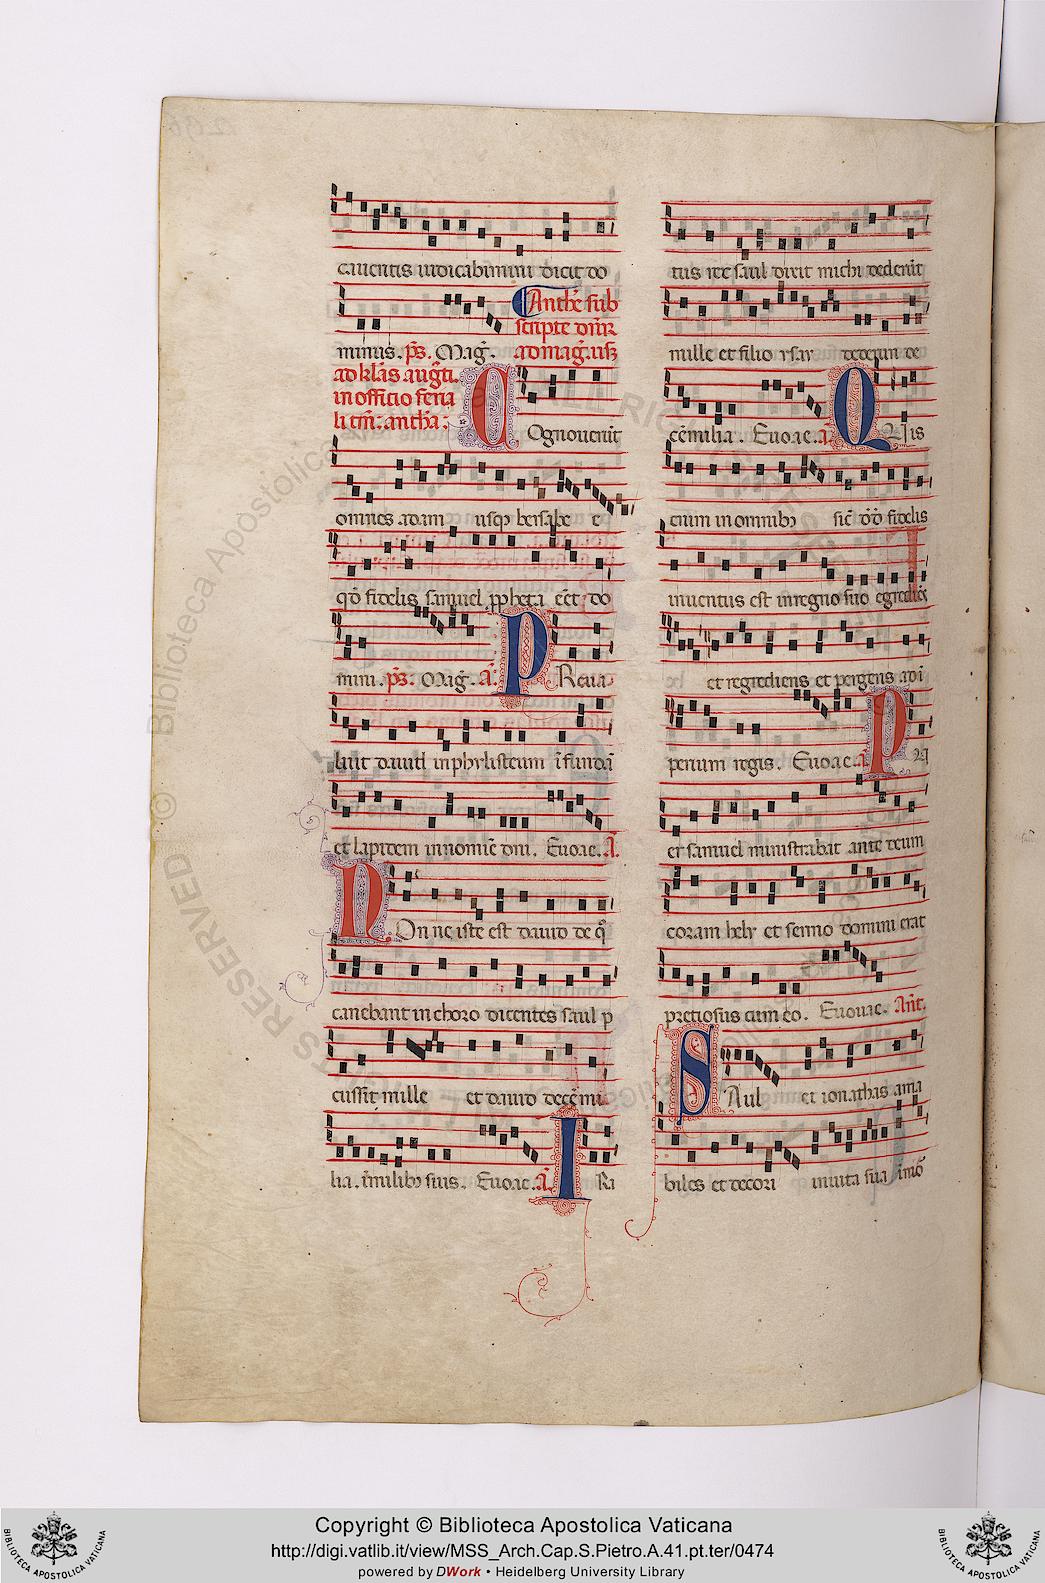 cauentis iudicabimini dicit do
Anthe sub
scripte dnr
minus. ps. Mag. ad mag. usq
ad kls augti.
in officio feria
li tm: antha:
COgnouerūt
omnes a dan usq bersabe e
qđ fidelis samuel ppheta eēt do
mini. ps. Mag. A. PReua
luit dauid in phylisteum ī funda
et lapidem in nomīe dni. Euoae. A.
NOnne iste est dauid de q̄
canebant in choro dicentes saul p
cussit mille et dauid decē mi
lia. ī milibȝ suis. Euoae. A. IRa
tus rex saul dixit michi dederūt
mille et filio ysay dederun de
cē milia. Euoae. A. QUis
enim in omnibȝ sic dd fidelis
inuentus est in regno suo egrediēs
et regrediens et pergens ad ī
perium regis. Euoae. A. PU
er samuel ministrabat ante deum
coram hely et sermo domini erat
pretiosus cum eo. Euouae. Ant.
SAul et ionathas ama
biles et decori in uita sua ī mo
Copyright © Biblioteca Apostolica Vaticana
http://digi.vatlib.it/view/MSS_Arch.Cap.S.Pietro.A.41.pt.ter/0474
powered by DWork • Heidelberg University Library
BIBLIOTECA APOSTOLICA VATICANA
BIBLIOTECA APOSTOLICA VATICANA